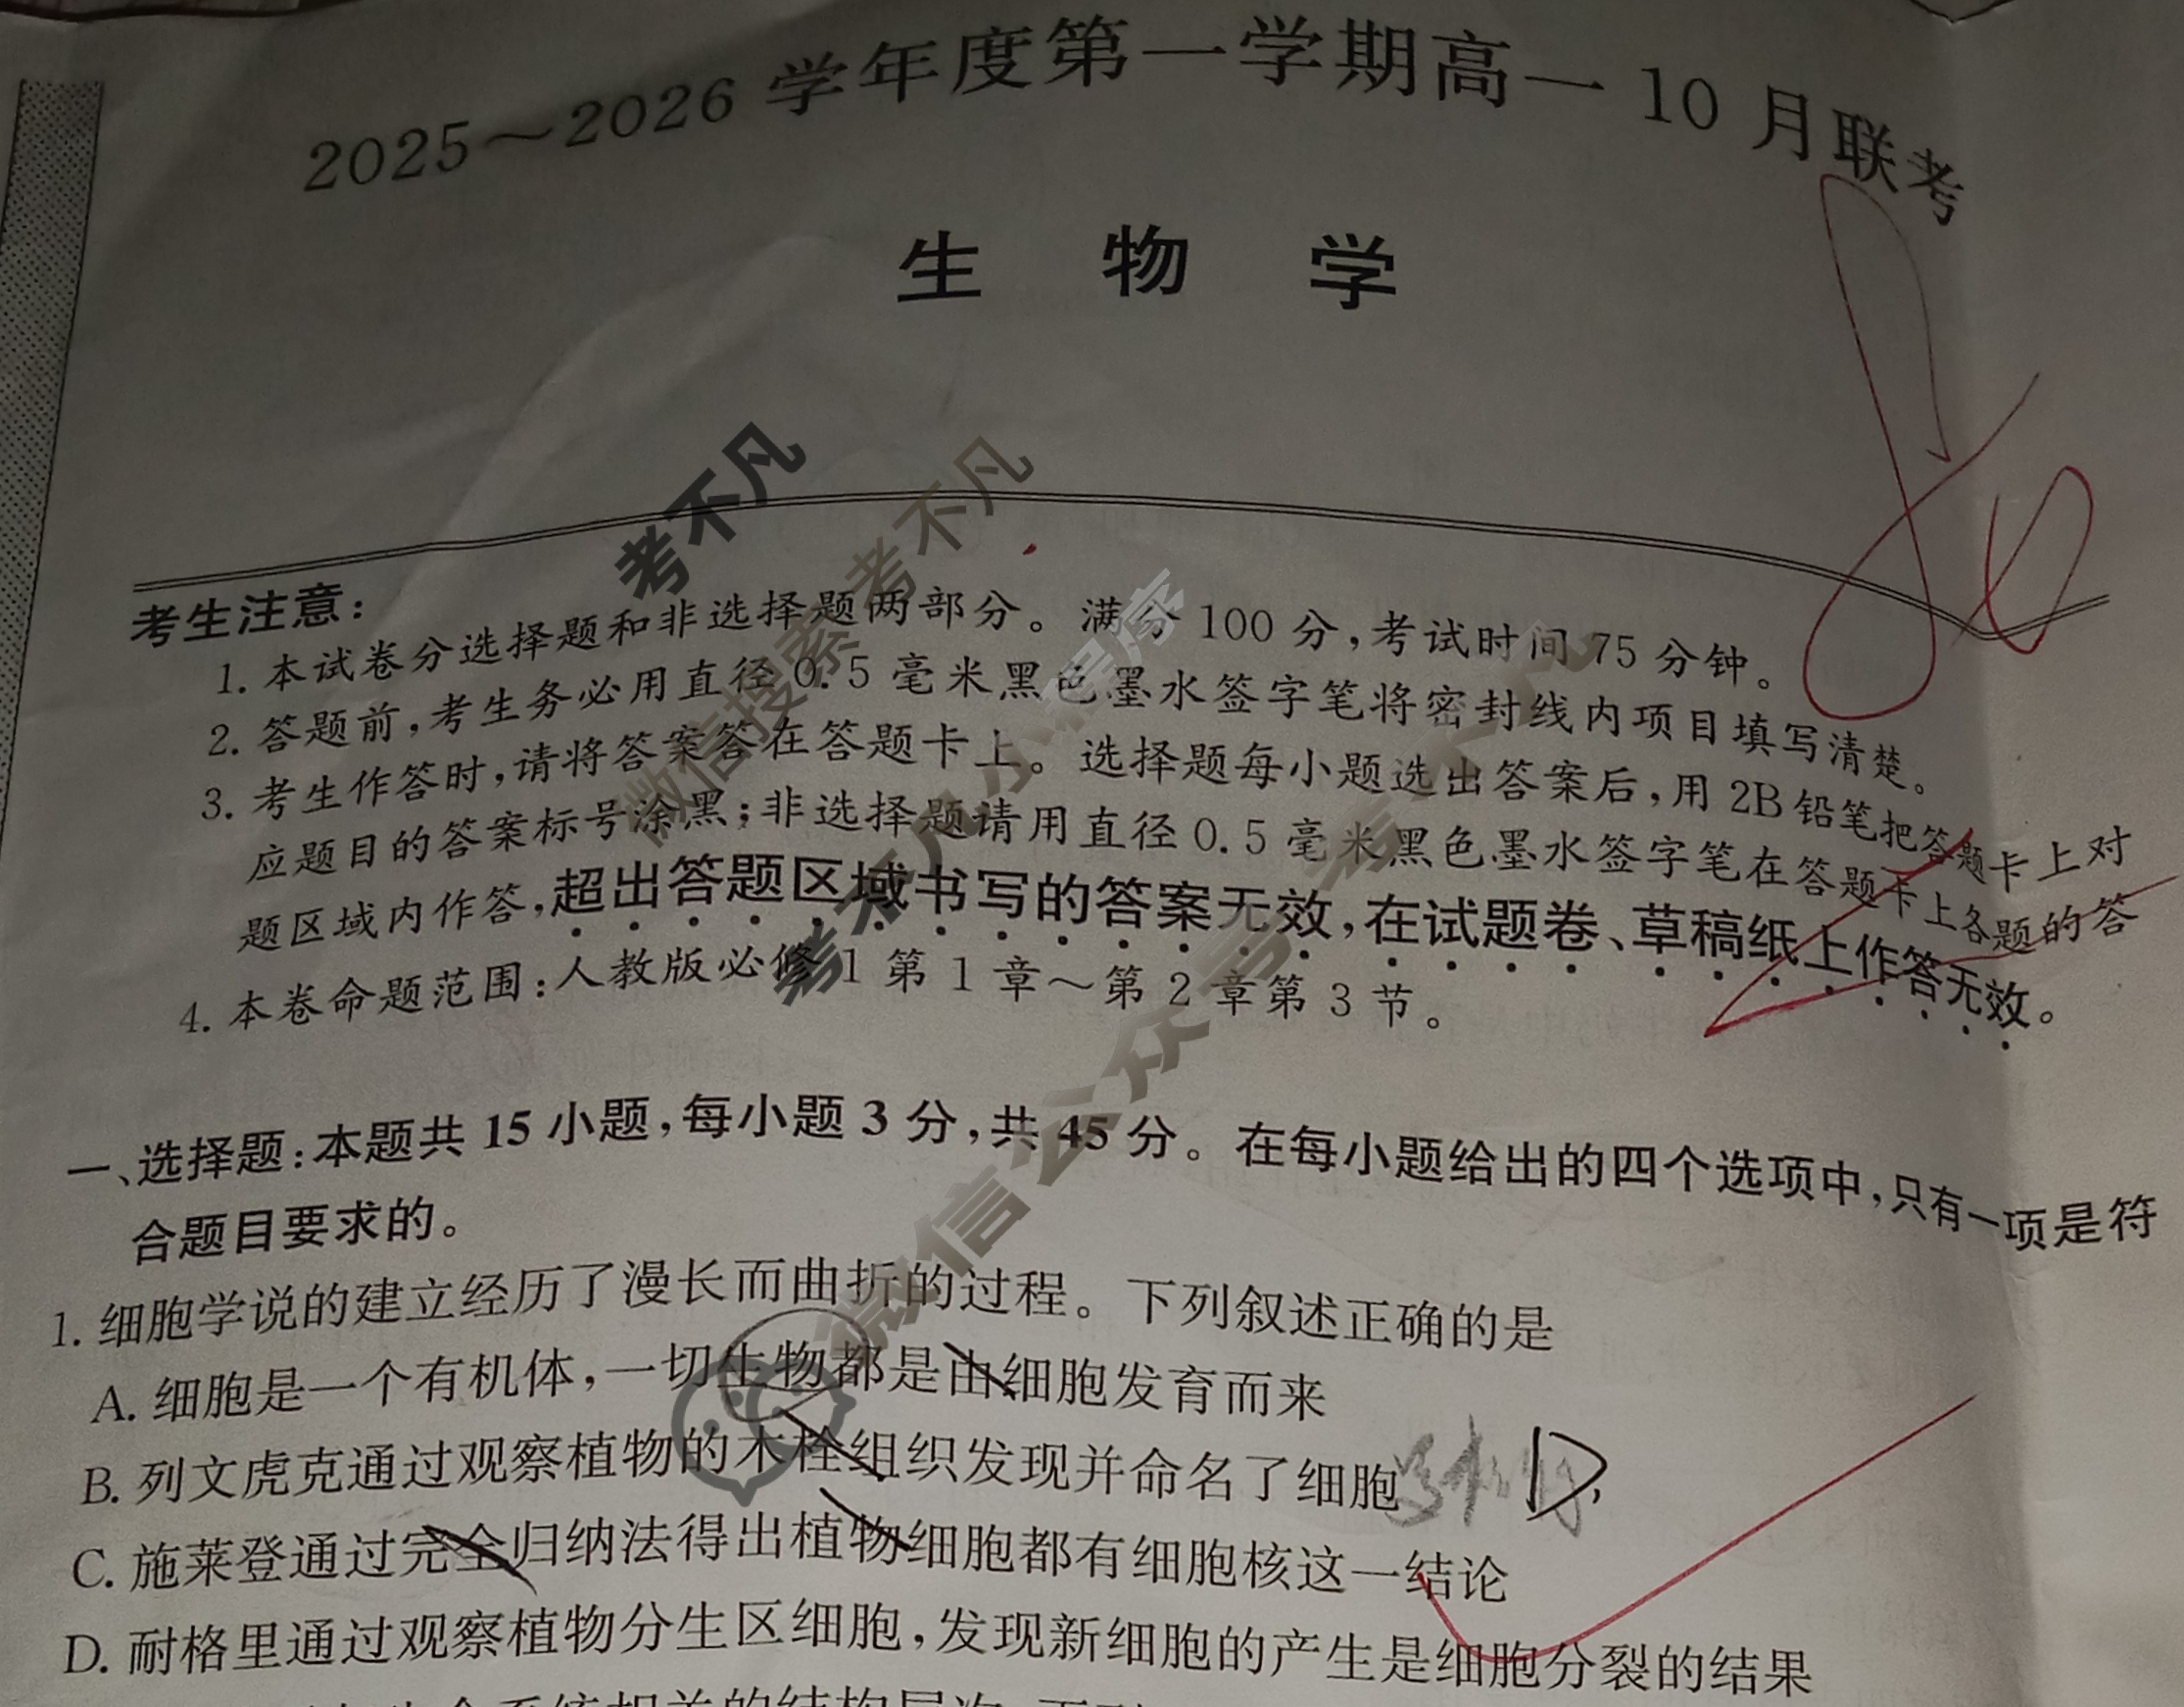 2025～2026 学年度第一学期高一 10 月联考
生 物 学
考生注意：
1. 本试卷分选择题和非选择题两部分。满分 100 分，考试时间 75 分钟。
2. 答题前，考生务必用直径 0.5 毫米黑色墨水签字笔将密封线内项目填写清楚。
3. 考生作答时，请将答案答在答题卡上。选择题每小题选出答案后，用 2B 铅笔把答题卡上对
应题目的答案标号涂黑；非选择题请用直径 0.5 毫米黑色墨水签字笔在答题卡上各题的答
题区域内作答，超出答题区域书写的答案无效，在试题卷、草稿纸上作答无效。
4. 本卷命题范围：人教版必修 1 第 1 章～第 2 章第 3 节。
一、选择题：本题共 15 小题，每小题 3 分，共 45 分。在每小题给出的四个选项中，只有一项是符
合题目要求的。
1. 细胞学说的建立经历了漫长而曲折的过程。下列叙述正确的是
A. 细胞是一个有机体，一切生物都是由细胞发育而来
B. 列文虎克通过观察植物的木栓组织发现并命名了细胞
D
C. 施莱登通过完全归纳法得出植物细胞都有细胞核这一结论
D. 耐格里通过观察植物分生区细胞，发现新细胞的产生是细胞分裂的结果
考不凡
微信搜索 考不凡
考不凡小程序
微信公众号 考不凡